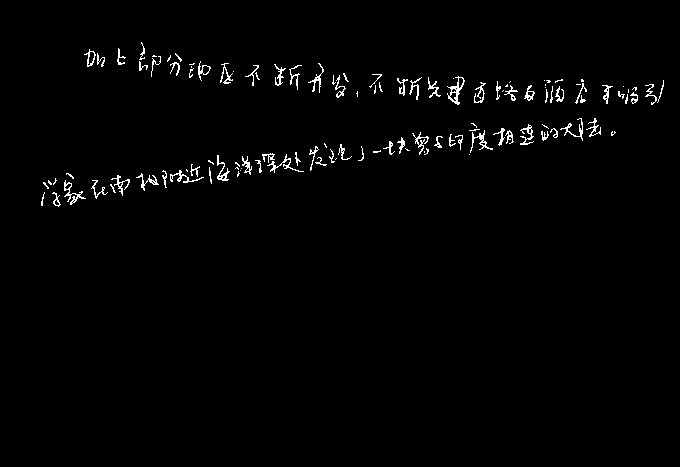 加上部分地区不断开发,不断兴建道路及酒店来吸引
学家在南极附近海洋深处发现了一块曾与印度相连的大陆。